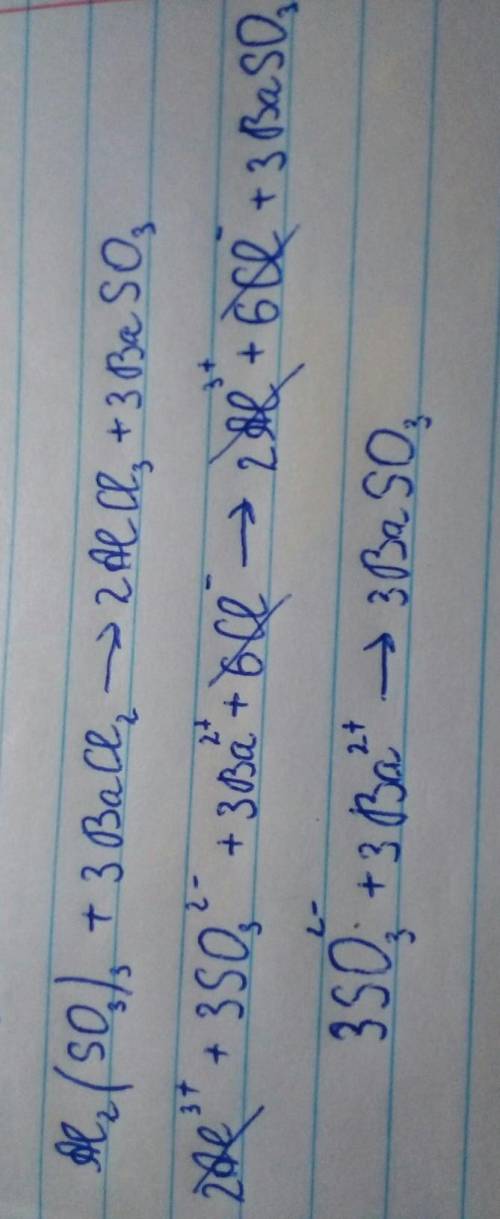 Al₂(SO₃)₃ + 3BaCl₂ → 2AlCl₃ + 3BaSO₃
2Al³⁺ + 3SO₃²⁻ + 3Ba²⁺ + 6Cl⁻ → 2Al³⁺ + 6Cl⁻ + 3BaSO₃
3SO₃²⁻ + 3Ba²⁺ → 3BaSO₃